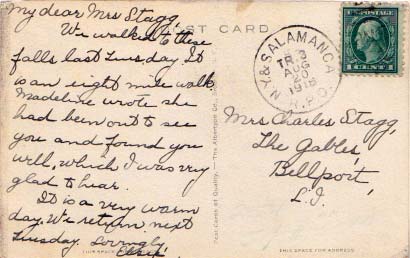 My dear Mrs Stagg,
We walked to these
falls last Tuesday. It
is an eight mile walk.
Madeline wrote she
had been out to see
you and found you
well, which I was very
glad to hear.
It is a very warm
day. We return next
Tuesday. Lovingly
POST CARD
N.Y. & SALAMANCA
TR. 3
AUG
20
1918
R.P.O.
U.S. POSTAGE
1 CENT 1
Mrs Charles Stagg,
The Gables,
Bellport,
L.I.
Post-Cards of Quality. — The Albertype Co.,
THIS SPACE FOR
THIS SPACE FOR ADDRESS.